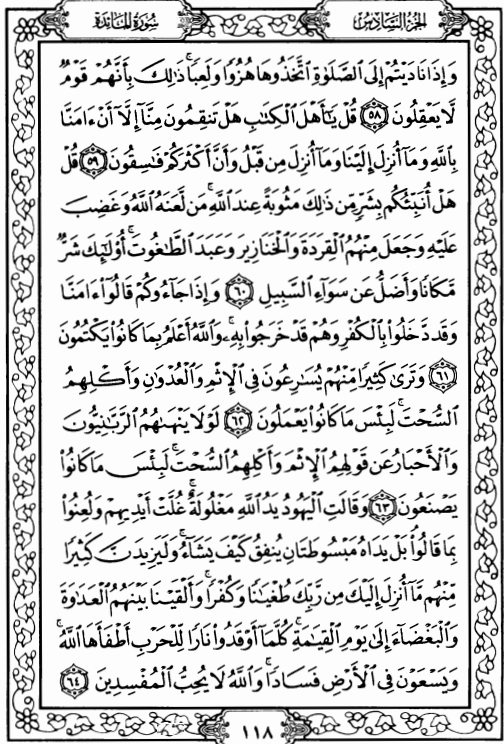 سُورَةُ المَائدَةِ
الجزء السادس
وَإِذَا نَادَيْتُمْ إِلَى ٱلصَّلَوٰةِ ٱتَّخَذُوهَا هُزُوًا وَلَعِبًا ۚ ذَٰلِكَ بِأَنَّهُمْ قَوْمٌ
لَّا يَعْقِلُونَ ٥٨ قُلْ يَٰٓأَهْلَ ٱلْكِتَٰبِ هَلْ تَنقِمُونَ مِنَّآ إِلَّآ أَنْ ءَامَنَّا
بِٱللَّهِ وَمَآ أُنزِلَ إِلَيْنَا وَمَآ أُنزِلَ مِن قَبْلُ وَأَنَّ أَكْثَرَكُمْ فَٰسِقُونَ ٥٩ قُلْ
هَلْ أُنَبِّئُكُم بِشَرٍّ مِّن ذَٰلِكَ مَثُوبَةً عِندَ ٱللَّهِ ۚ مَن لَّعَنَهُ ٱللَّهُ وَغَضِبَ
عَلَيْهِ وَجَعَلَ مِنْهُمُ ٱلْقِرَدَةَ وَٱلْخَنَازِيرَ وَعَبَدَ ٱلطَّٰغُوتَ ۚ أُو۟لَٰٓئِكَ شَرٌّ
مَّكَانًا وَأَضَلُّ عَن سَوَآءِ ٱلسَّبِيلِ ٦٠ وَإِذَا جَآءُوكُمْ قَالُوٓا۟ ءَامَنَّا
وَقَد دَّخَلُوا۟ بِٱلْكُفْرِ وَهُمْ قَدْ خَرَجُوا۟ بِهِۦ ۚ وَٱللَّهُ أَعْلَمُ بِمَا كَانُوا۟ يَكْتُمُونَ
٦١ وَتَرَىٰ كَثِيرًا مِّنْهُمْ يُسَٰرِعُونَ فِى ٱلْإِثْمِ وَٱلْعُدْوَٰنِ وَأَكْلِهِمُ
ٱلسُّحْتَ ۚ لَبِئْسَ مَا كَانُوا۟ يَعْمَلُونَ ٦٢ لَوْلَا يَنْهَىٰهُمُ ٱلرَّبَّٰنِيُّونَ
وَٱلْأَحْبَارُ عَن قَوْلِهِمُ ٱلْإِثْمَ وَأَكْلِهِمُ ٱلسُّحْتَ ۚ لَبِئْسَ مَا كَانُوا۟
يَصْنَعُونَ ٦٣ وَقَالَتِ ٱلْيَهُودُ يَدُ ٱللَّهِ مَغْلُولَةٌ ۚ غُلَّتْ أَيْدِيهِمْ وَلُعِنُوا۟
بِمَا قَالُوا۟ ۘ بَلْ يَدَاهُ مَبْسُوطَتَانِ يُنفِقُ كَيْفَ يَشَآءُ ۚ وَلَيَزِيدَنَّ كَثِيرًا
مِّنْهُم مَّآ أُنزِلَ إِلَيْكَ مِن رَّبِّكَ طُغْيَٰنًا وَكُفْرًا ۚ وَأَلْقَيْنَا بَيْنَهُمُ ٱلْعَدَٰوَةَ
وَٱلْبَغْضَآءَ إِلَىٰ يَوْمِ ٱلْقِيَٰمَةِ ۚ كُلَّمَآ أَوْقَدُوا۟ نَارًا لِّلْحَرْبِ أَطْفَأَهَا ٱللَّهُ ۚ
وَيَسْعَوْنَ فِى ٱلْأَرْضِ فَسَادًا ۚ وَٱللَّهُ لَا يُحِبُّ ٱلْمُفْسِدِينَ ٦٤
١١٨